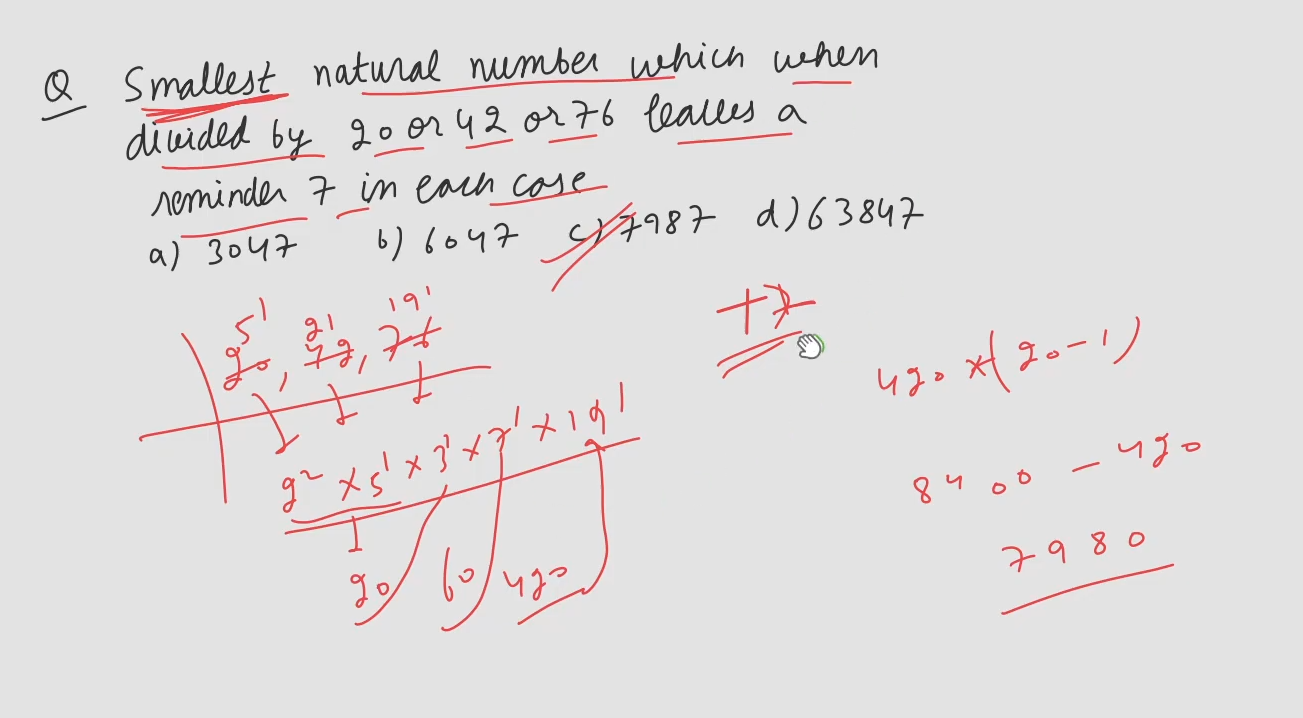 Q Smallest natural number which when
divided by 20 or 42 or 76 leaves a
reminder 7 in each case
a) 3047 b) 6047 c) 7987 d) 63847
5 21 19
20, 42, 76
+7
2² × 5¹ × 3¹ × 7¹ × 19¹
20 60 420
420 × (20-1)
8400 - 420
7980